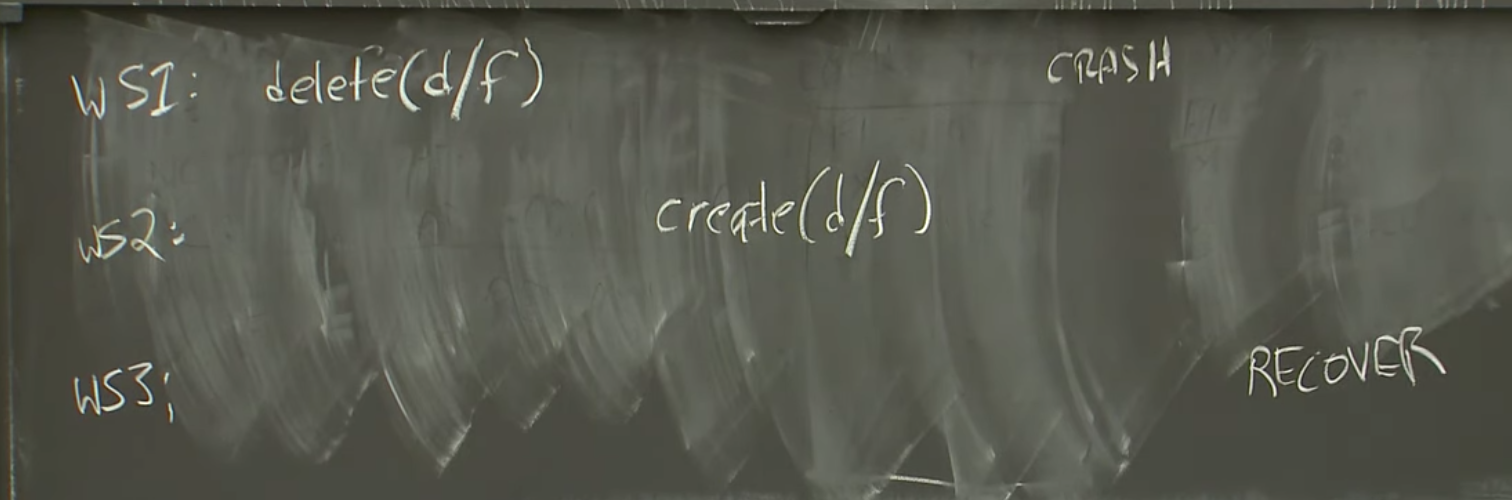 WS1: delete(d/f) CRASH
WS2: create(d/f)
WS3: RECOVER